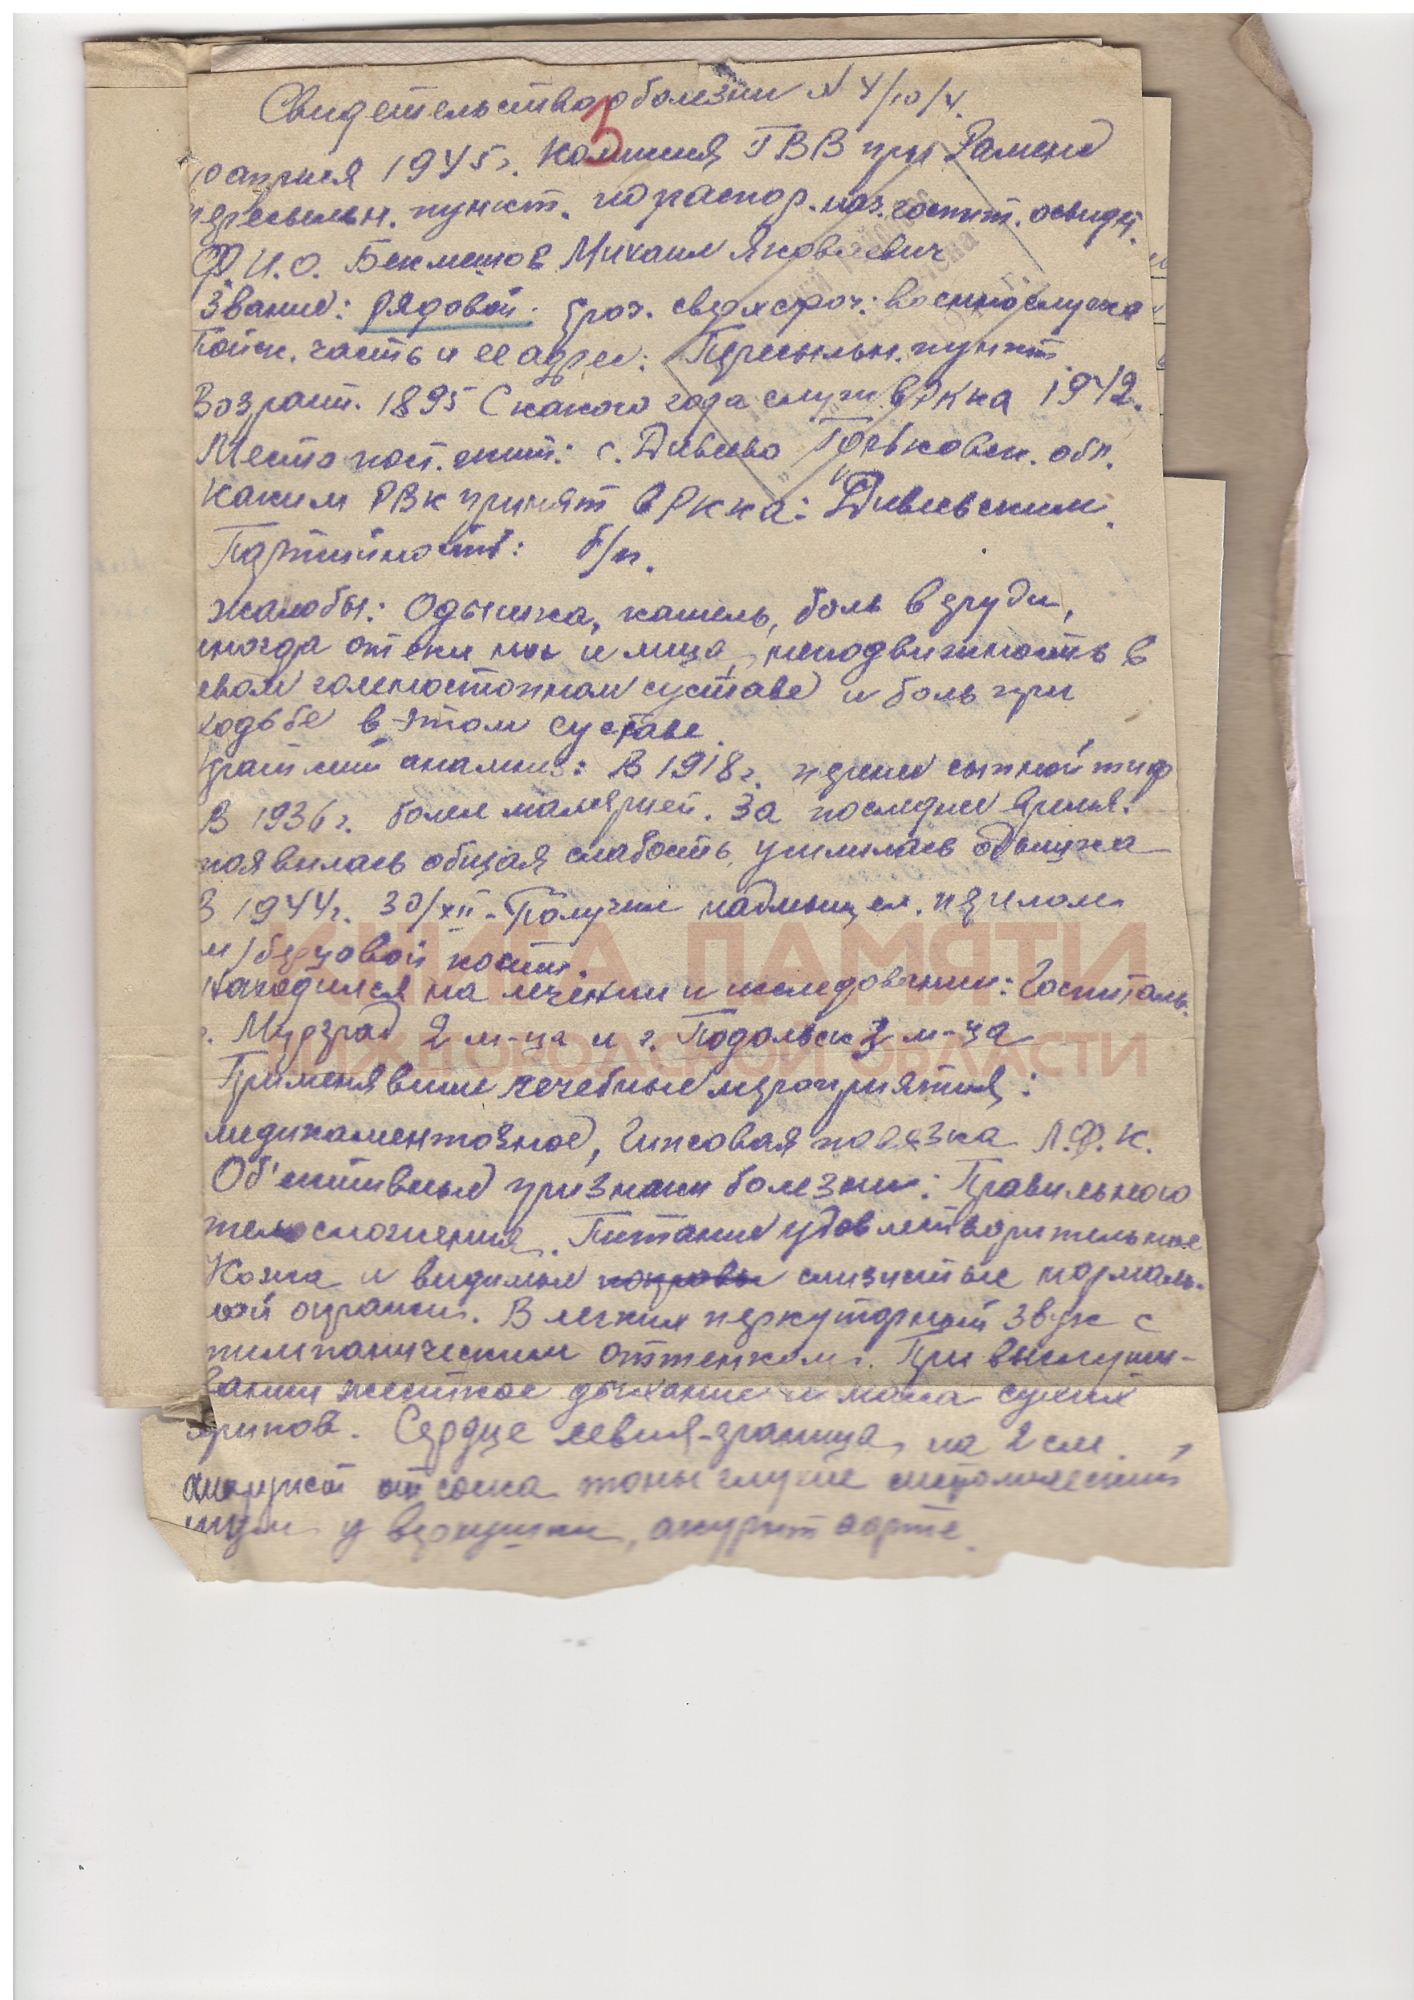 Свидетельство о болезни № 4/10/4.
3
10 апреля 1945 г. Комиссия ГВВ при Раменс
пересыльн. пункт. по распор. нач. госпит. освидет.
Ф.И.О. Бекметов Михаил Яковлевич
Звание: рядовой. Сроч. сверхсроч: военнослужа
Войск. часть и ее адрес: Пересыльн. пункт
Возраст. 1895 С какого года служ. в РККА 1942.
Место пост. жит.: с. Дивеево Горьковск. обл.
Каким РВК принят в РККА: Дивеевским.
Партийность: б/п.
Жалобы: Одышка, кашель, боль в груди,
иногда отеки ног и лица, неподвижность в
евом голеностопном суставе и боль при
ходьбе в этом суставе.
Краткий анамнез: В 1918 г. перенес сыпной тиф
В 1936 г. болел малярией. За последнее время
появилась общая слабость, усилилась одышка
В 1944 г. 30/XII - Получил надмыщел. перелом
м/берцовой кости.
Находился на лечении и исследовании: Госпиталь.
г. 2 м-ца и г. Подольск 3 м-ца
Применявшие лечебные мероприятия:
медикаментозное, Гипсовая повязка Л.Ф.К.
Об'ективные признаки болезни: Правильного
телосложения. Питание удовлетворительное
Кожа и видимые покровы слизистые нормаль-
ной окраски. В легких перкуторный звук с
тимпаническим оттенком. При выслуши-
вании жесткое дыхание и масса сухих
хрипов. Сердце левая граница на 2 см.
от соска тоны глухие систолический
шум у верхушки, акцент аорте.
КНИГА ПАМЯТИ
НИЖЕГОРОДСКОЙ ОБЛАСТИ